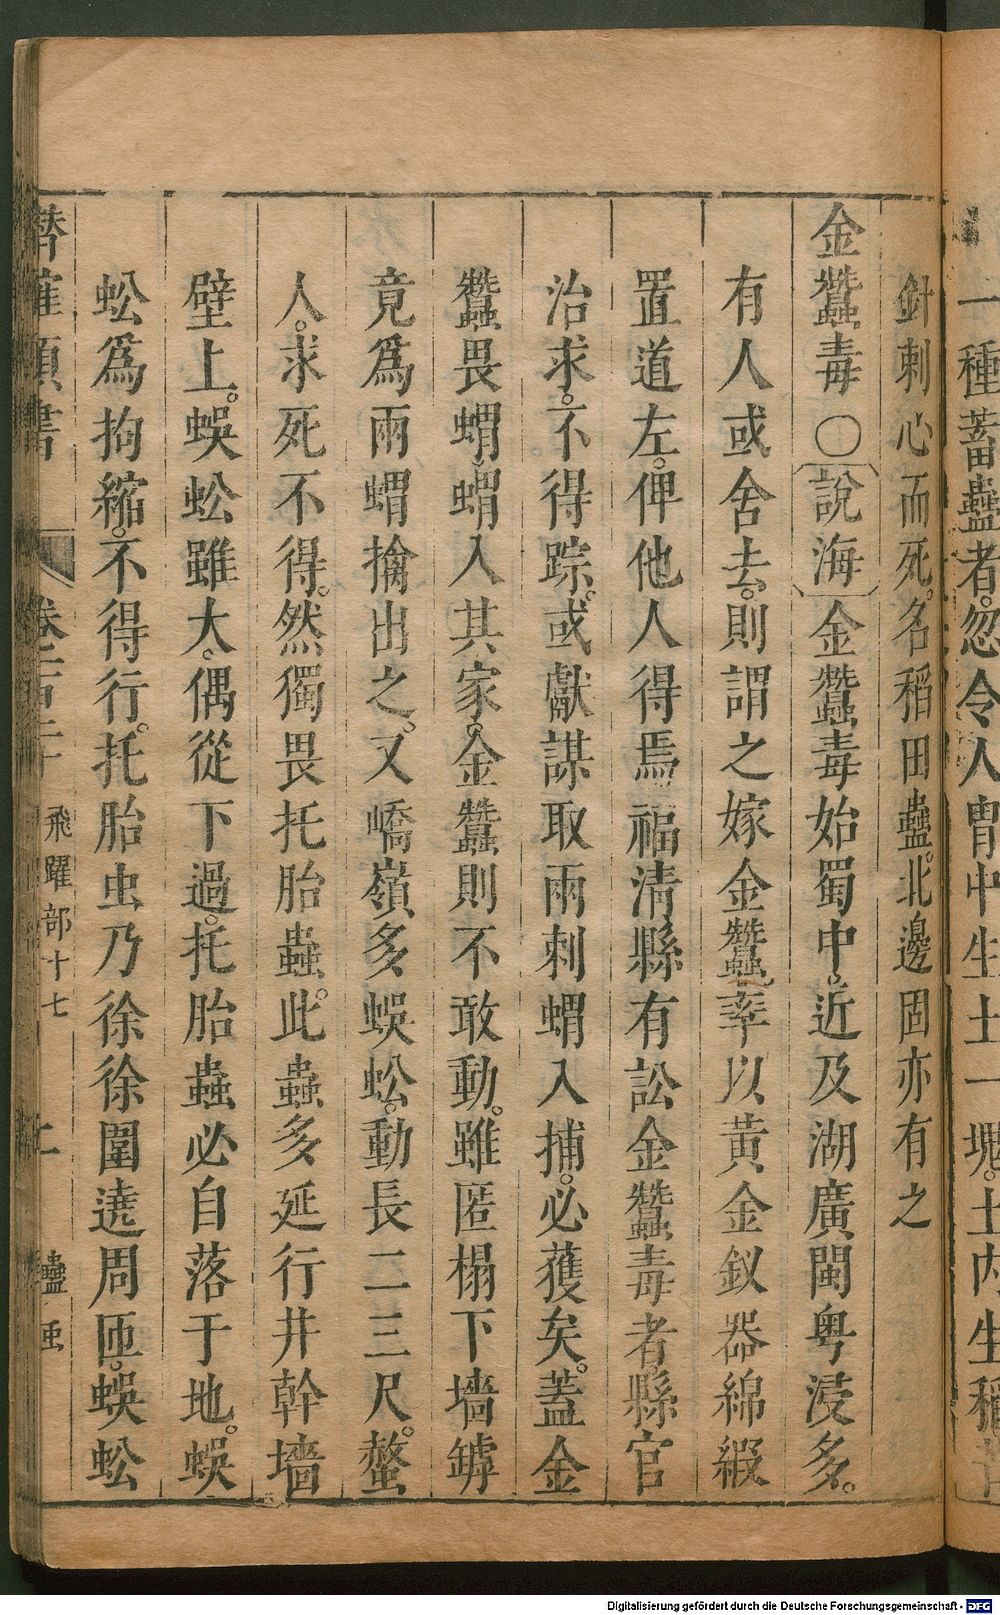 一種蓄蠱者。忽令人胷中生土一塊。土内生稻
針刺心而死。名稻田蠱。北邊固亦有之
金蠶毒〇說海金蠶毒始蜀中。近及湖廣閩粤浸多。
有人或舍去。則謂之嫁金蠶。率以黃金釵器。綿緞
置道左。俾他人得焉。福清縣有訟金蠶毒者。縣官
治求。不得踪。或獻謀取兩刺蝟入捕。必獲矣。蓋金
蠶畏蝟。蝟入其家。金蠶則不敢動。雖匿榻下墻罅
竟爲兩蝟擒出之。又嶠嶺多蜈蚣。動長二三尺。螫
人。求死不得。然獨畏托胎蟲。此蟲多延行井幹墻
壁上。蜈蚣雖大。偶從下過。托胎蟲必自落于地。蜈
蚣爲拘縮。不得行。托胎虫乃徐徐圍遶周匝。蜈蚣
潛確類書 飛躍部十七 蠱
Digitalisierung gefördert durch die Deutsche Forschungsgemeinschaft - DFG